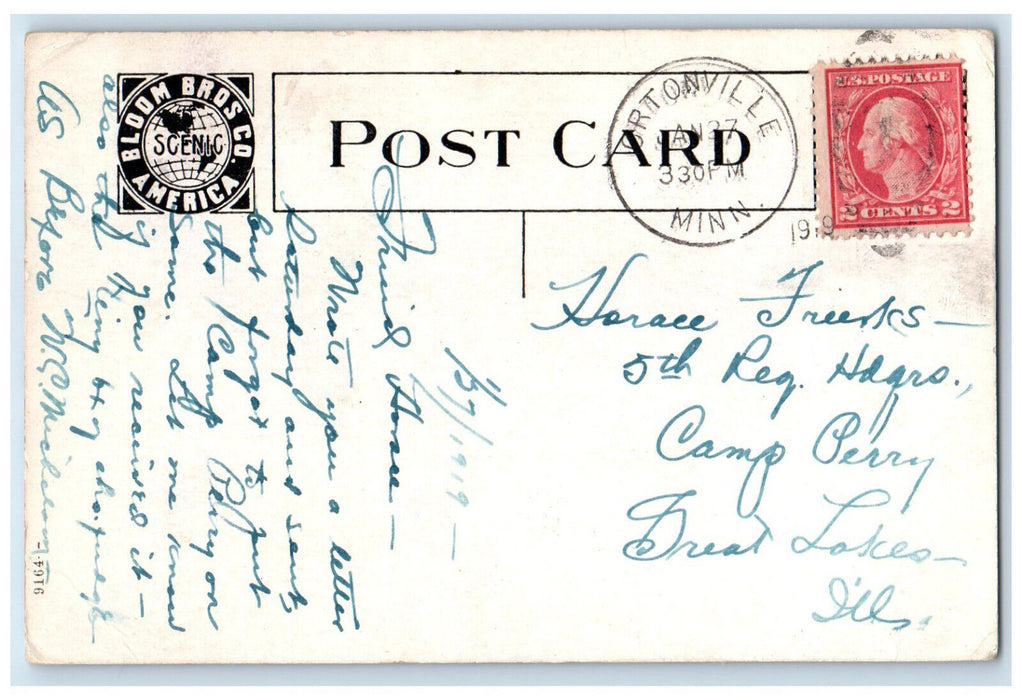 BLOOM BROS. CO.
SCENIC
AMERICA
POST CARD
ORTONVILLE
JAN 27
330PM
MINN.
U.S. POSTAGE
2 CENTS 2
1/27/1919—
Friend Horace—
Wrote you a letter
Saturday and sent
but forgot to put
the Camp Perry on
same. Let me know
if you received it—
also the
As Before
Horace
5th Reg. Hdqrs.,
Camp Perry
Great Lakes—
Ills.
9164-